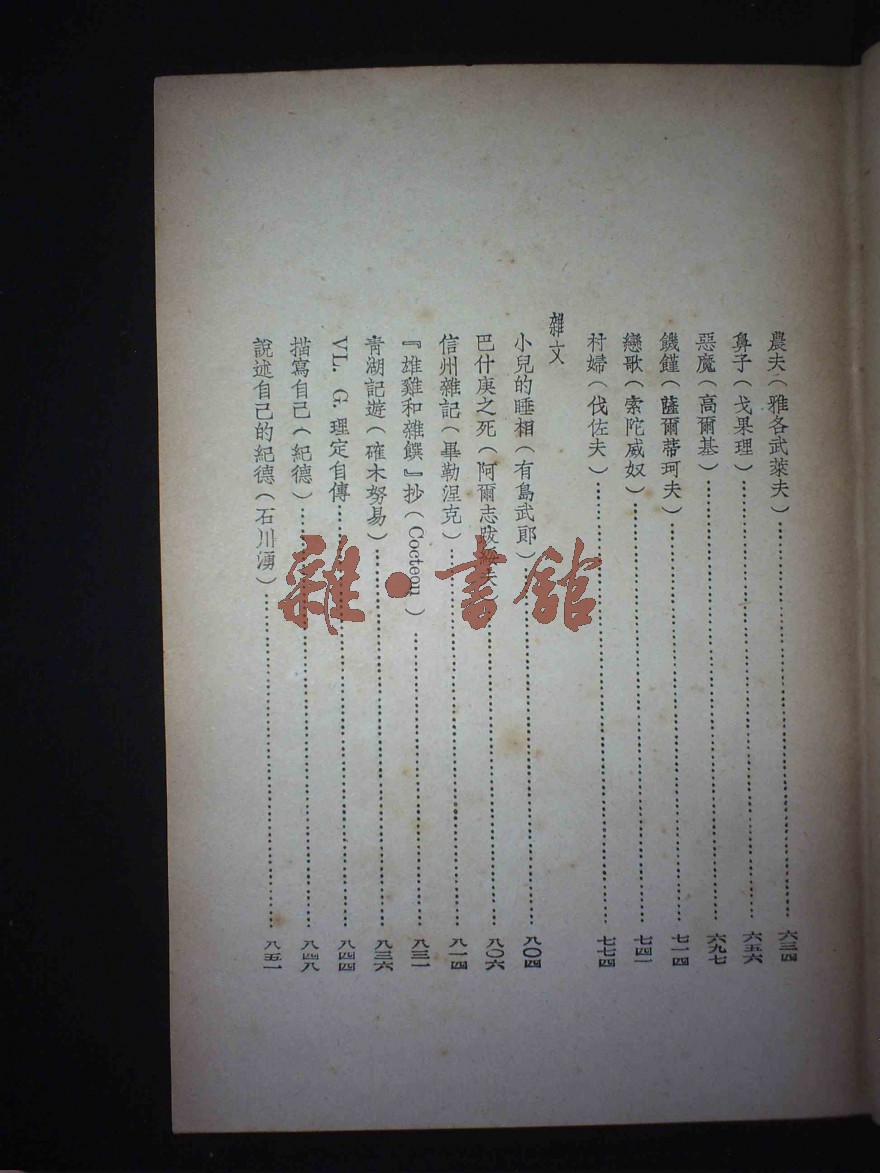 農夫（雅各武萊夫）……六三四
鼻子（戈果理）……六五六
惡魔（高爾基）……六九七
饑饉（薩爾蒂珂夫）……七一四
戀歌（索陀威奴）……七四一
村婦（伐佐夫）……七七四
雜文
小兒的睡相（有島武郎）……八〇四
巴什庚之死（阿爾志跋綏夫）……八〇六
信州雜記（畢勒涅克）……八一四
『雄雞和雜饌』抄（Cocteau）……八三一
青湖記遊（確木努易）……八三六
VL. G. 理定自傳……八四四
描寫自己（紀德）……八四八
說述自己的紀德（石川湧）……八五一
雜·書館